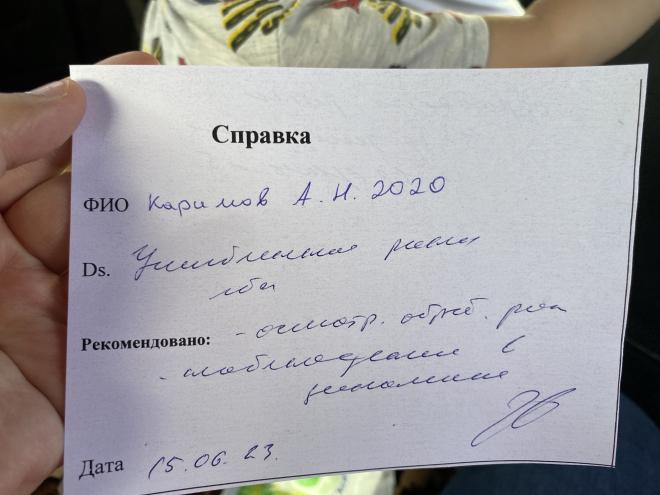 Справка
ФИО Каримов А. Н. 2020
Ds. Ушибленная рана
лба
Рекомендовано: - осмотр. обраб. раны
- наблюдение в
Дата 15.06.23.